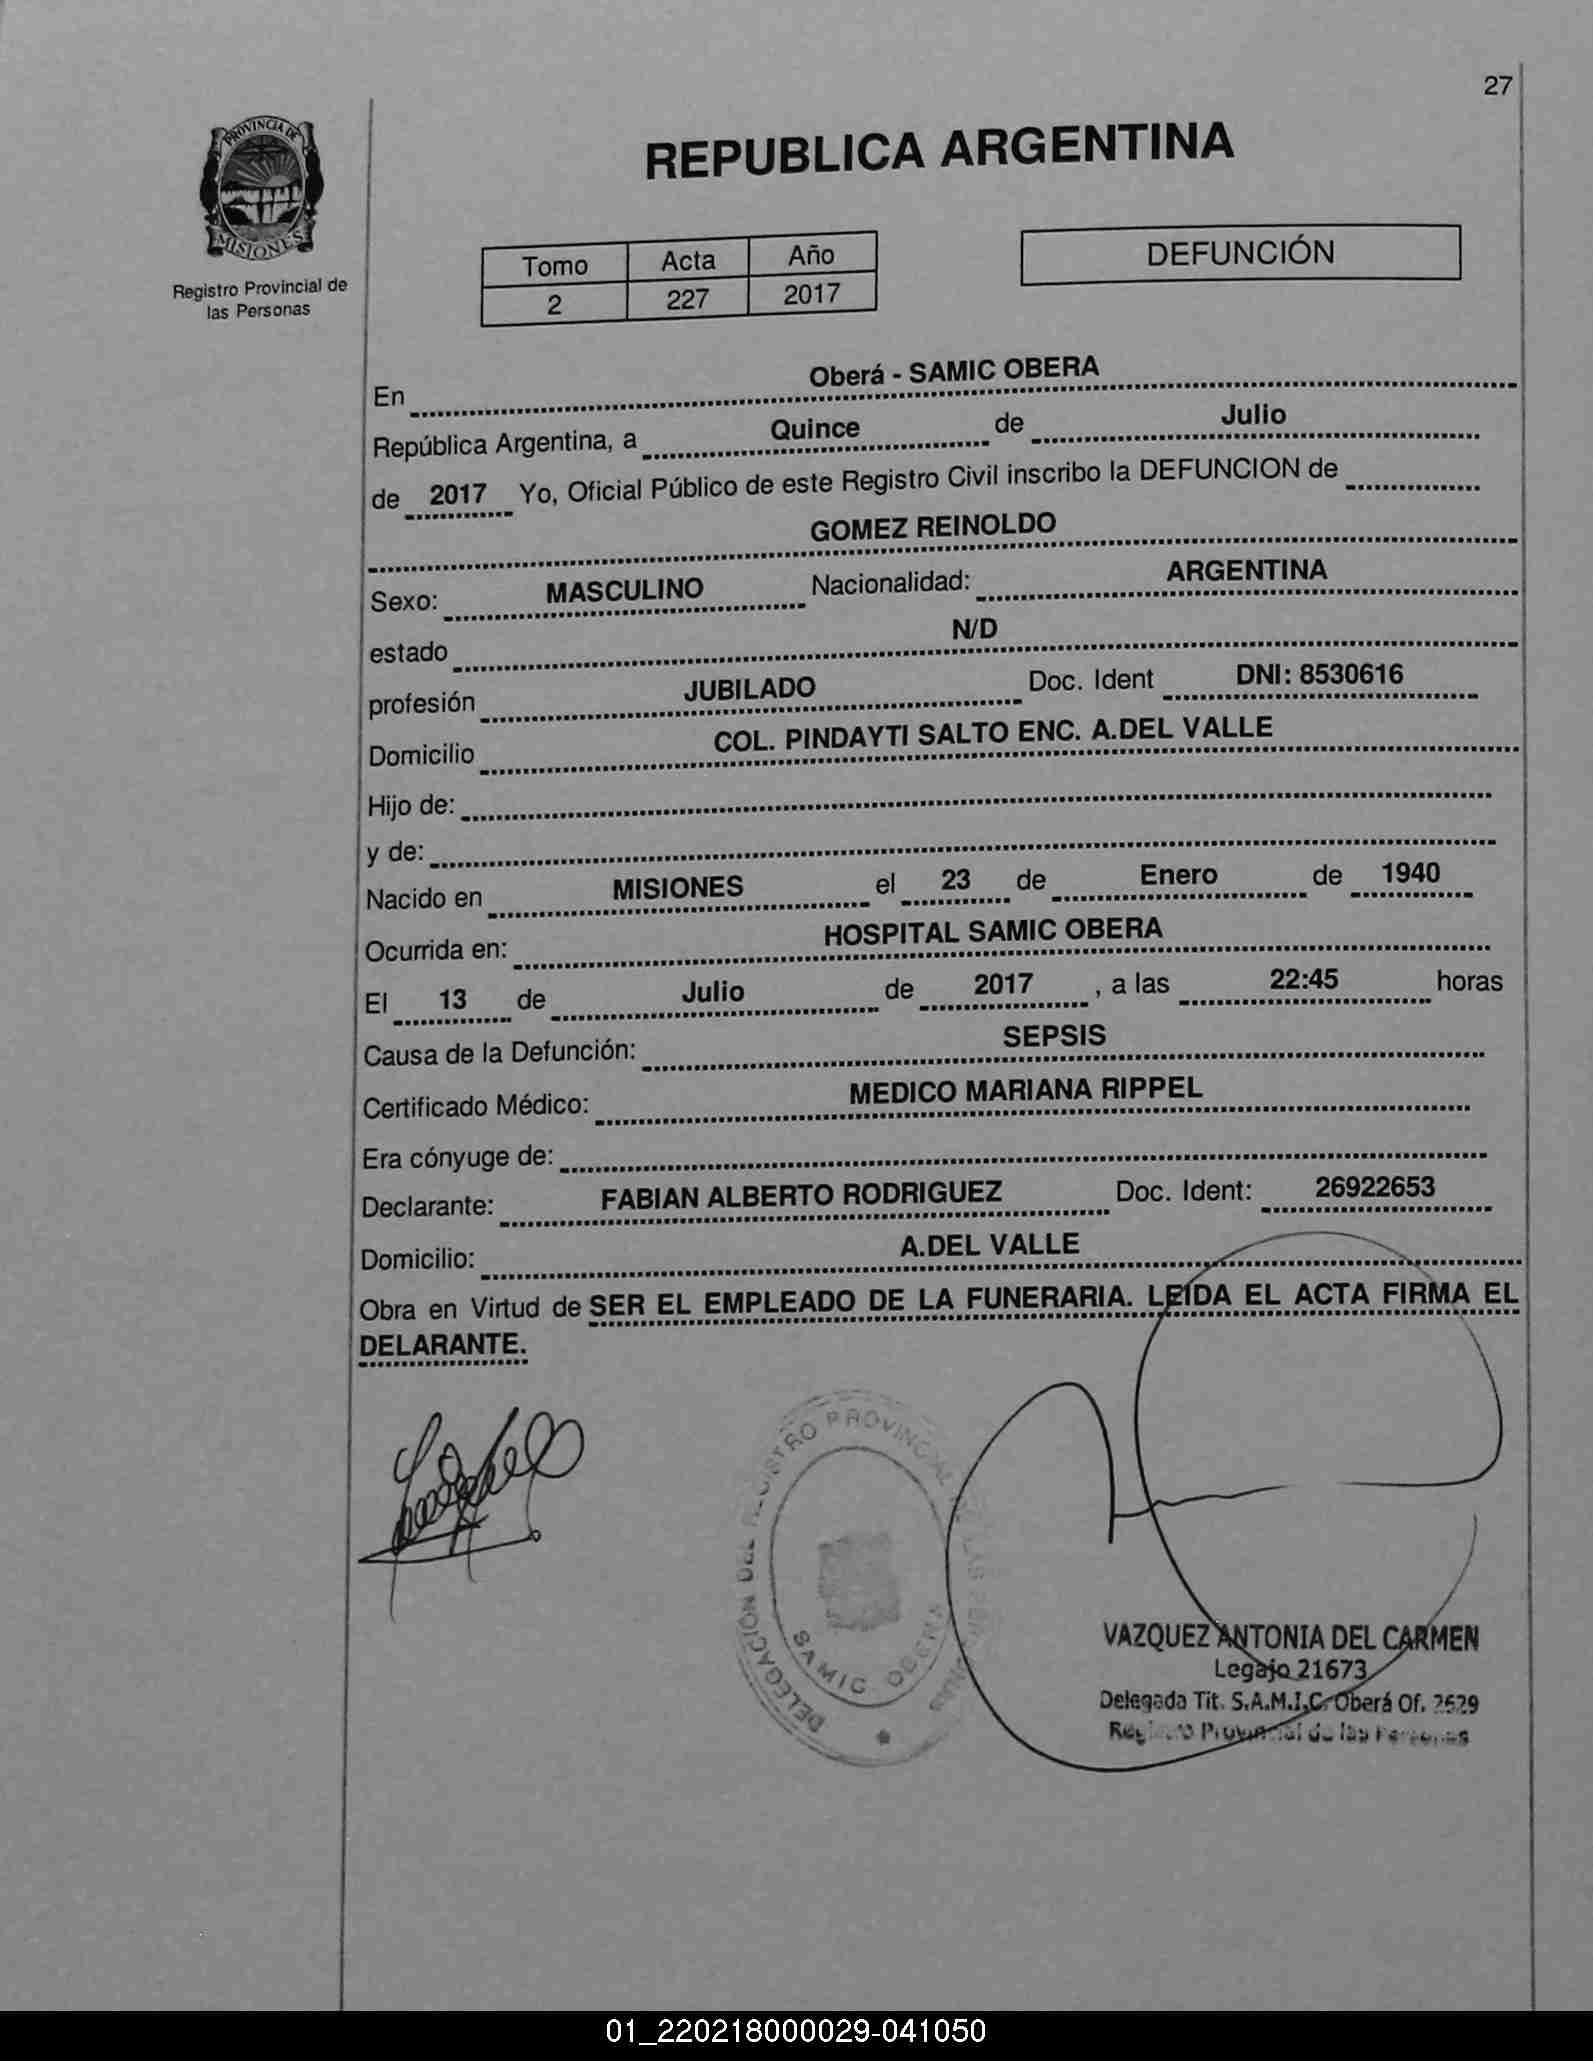 27
PROVINCIA DE
MISIONES
Registro Provincial de
las Personas
REPUBLICA ARGENTINA
Tomo Acta Año
2 227 2017
DEFUNCIÓN
En Oberá - SAMIC OBERA
República Argentina, a Quince de Julio
de 2017 Yo, Oficial Público de este Registro Civil inscribo la DEFUNCION de
GOMEZ REINOLDO
Sexo: MASCULINO Nacionalidad: ARGENTINA
estado N/D
profesión JUBILADO Doc. Ident DNI: 8530616
Domicilio COL. PINDAYTI SALTO ENC. A.DEL VALLE
Hijo de:
y de:
Nacido en MISIONES el 23 de Enero de 1940
Ocurrida en: HOSPITAL SAMIC OBERA
El 13 de Julio de 2017 , a las 22:45 horas
Causa de la Defunción: SEPSIS
Certificado Médico: MEDICO MARIANA RIPPEL
Era cónyuge de:
Declarante: FABIAN ALBERTO RODRIGUEZ Doc. Ident: 26922653
Domicilio: A.DEL VALLE
Obra en Virtud de SER EL EMPLEADO DE LA FUNERARIA. LEIDA EL ACTA FIRMA EL
DELARANTE.
DELEGACIÓN DEL REGISTRO PROVINCIAL DE LAS PERSONAS
SAMIC OBERA
VAZQUEZ ANTONIA DEL CARMEN
Legajo 21673
Delegada Tit. S.A.M.I.C. Oberá Of. 2629
Registro Provincial de las Personas
01_220218000029-041050